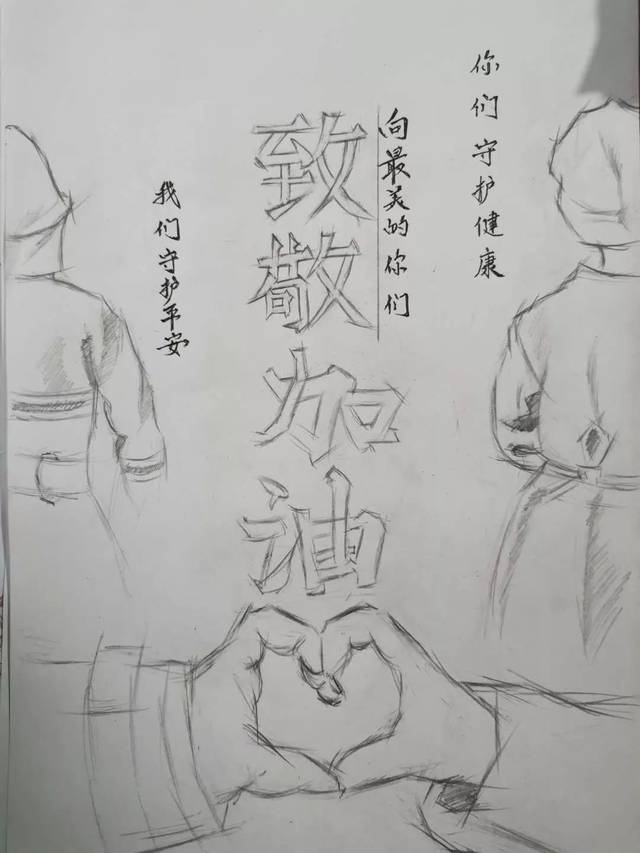 你们守护健康
向最美的你们
致敬加油
我们守护平安